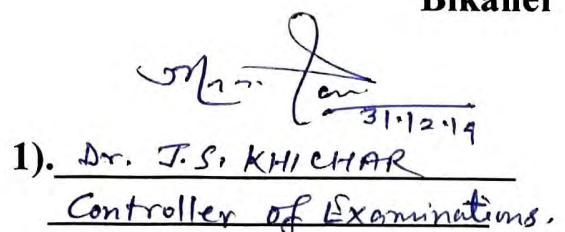 Bikaner
31.12.19
1). Dr. J.S. KHICHAR
Controller of Examinations.